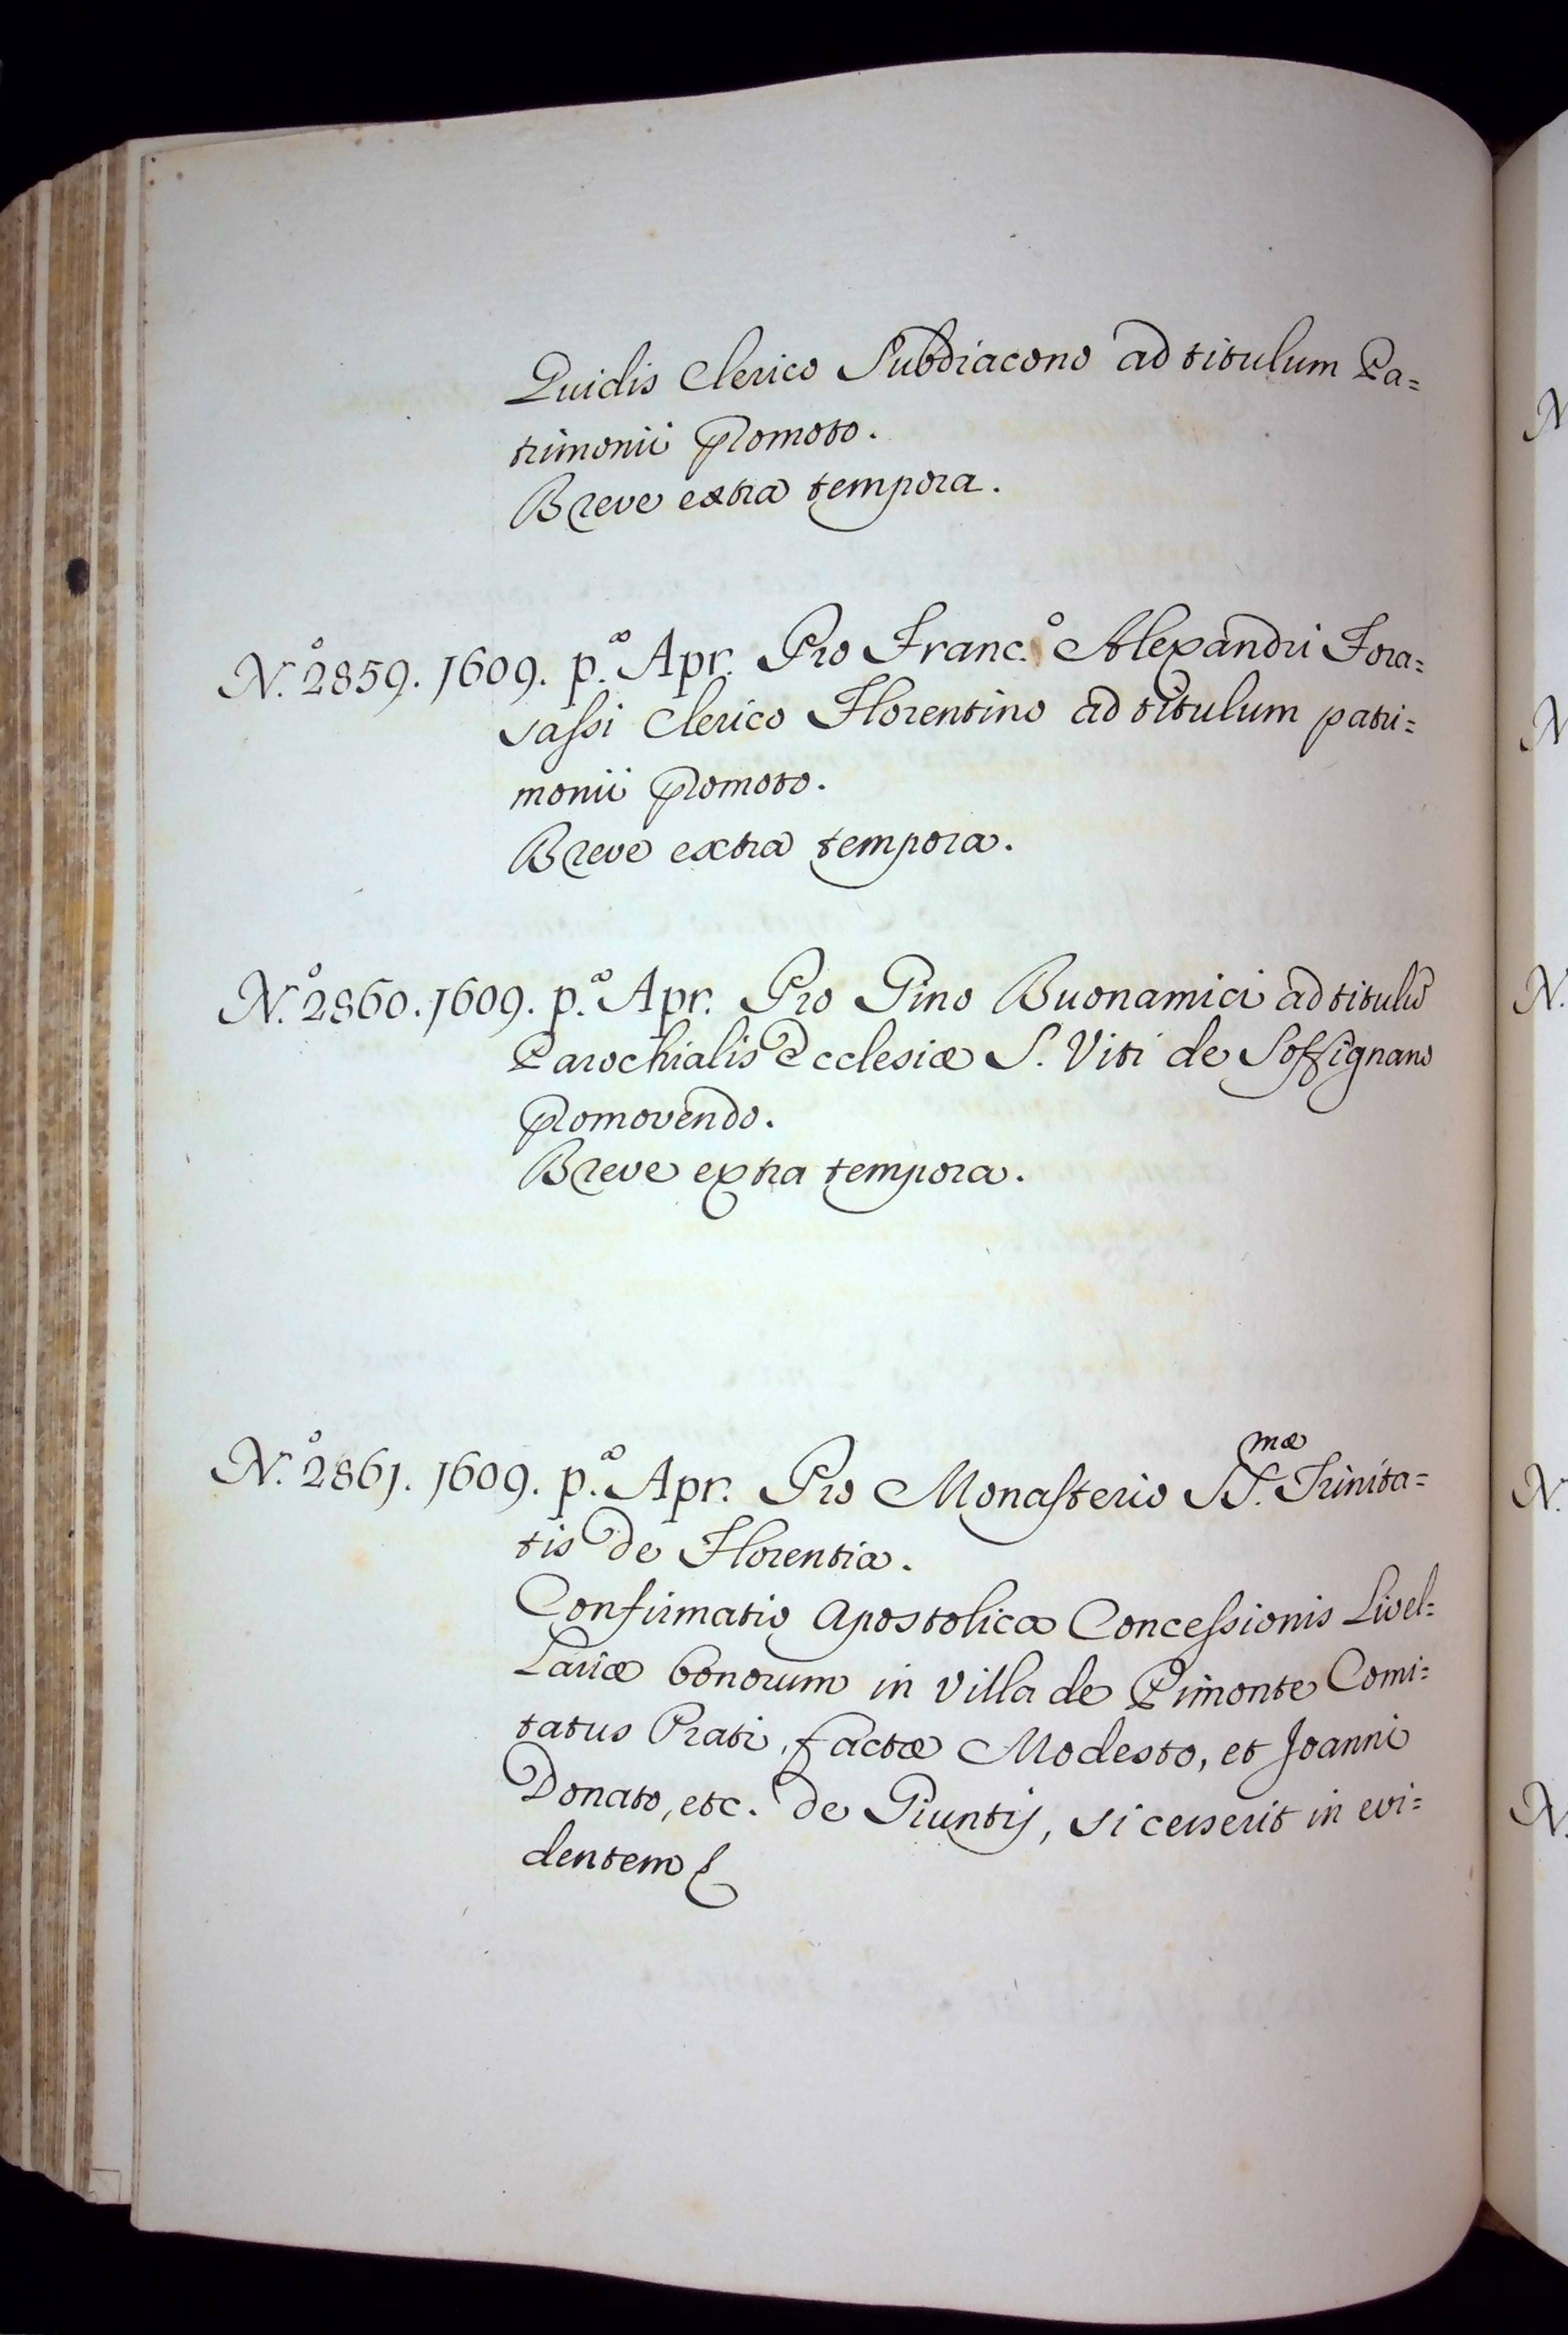 Guidis Clerico Subdiacono ad titulum Pa=
trimonii promoto.
Breve extra tempora.
N.º 2859. 1609. p.ª Apr. Pro Franc.º Alexandri Fora=
sassi Clerico Florentino ad titulum patri=
monii promoto.
Breve extra tempora.
N.º 2860. 1609. p.ª Apr. Pro Pino Buonamici ad titulũ
Parochialis Ecclesiæ S. Viti de Soffignano
promovendo.
Breve extra tempora.
N.º 2861. 1609. p.ª Apr. Pro Monasterio SS.mæ Trinita=
tis de Florentia.
Confirmatio Apostolica Concessionis Livel=
Lariæ bonorum in Villa de Pimonte Comi=
tatus Prati, factæ Modesto, et Joanni
Donato, etc. de Giuntij, si ceserit in evi=
dentem
N
N
N.
N.
N.